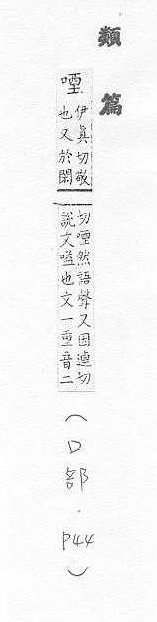 類篇
㖶
伊眞切敬
也又於閑
切㖶然語聲又因連切
說文嗌也文一重音二
(口部.P44)